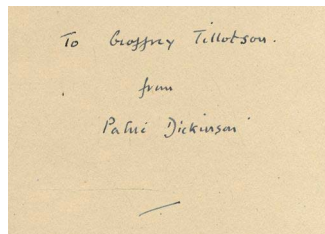 To Geoffrey Tillotson.
from
Patric Dickinson